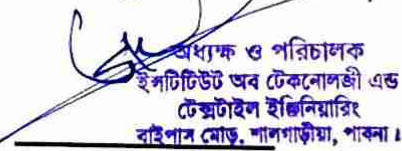 অধ্যক্ষ ও পরিচালক
ইন্সটিটিউট অব টেকনোলজী এন্ড
টেক্সটাইল ইঞ্জিনিয়ারিং
বাইপাস মোড়, শালগাড়ীয়া, পাবনা।